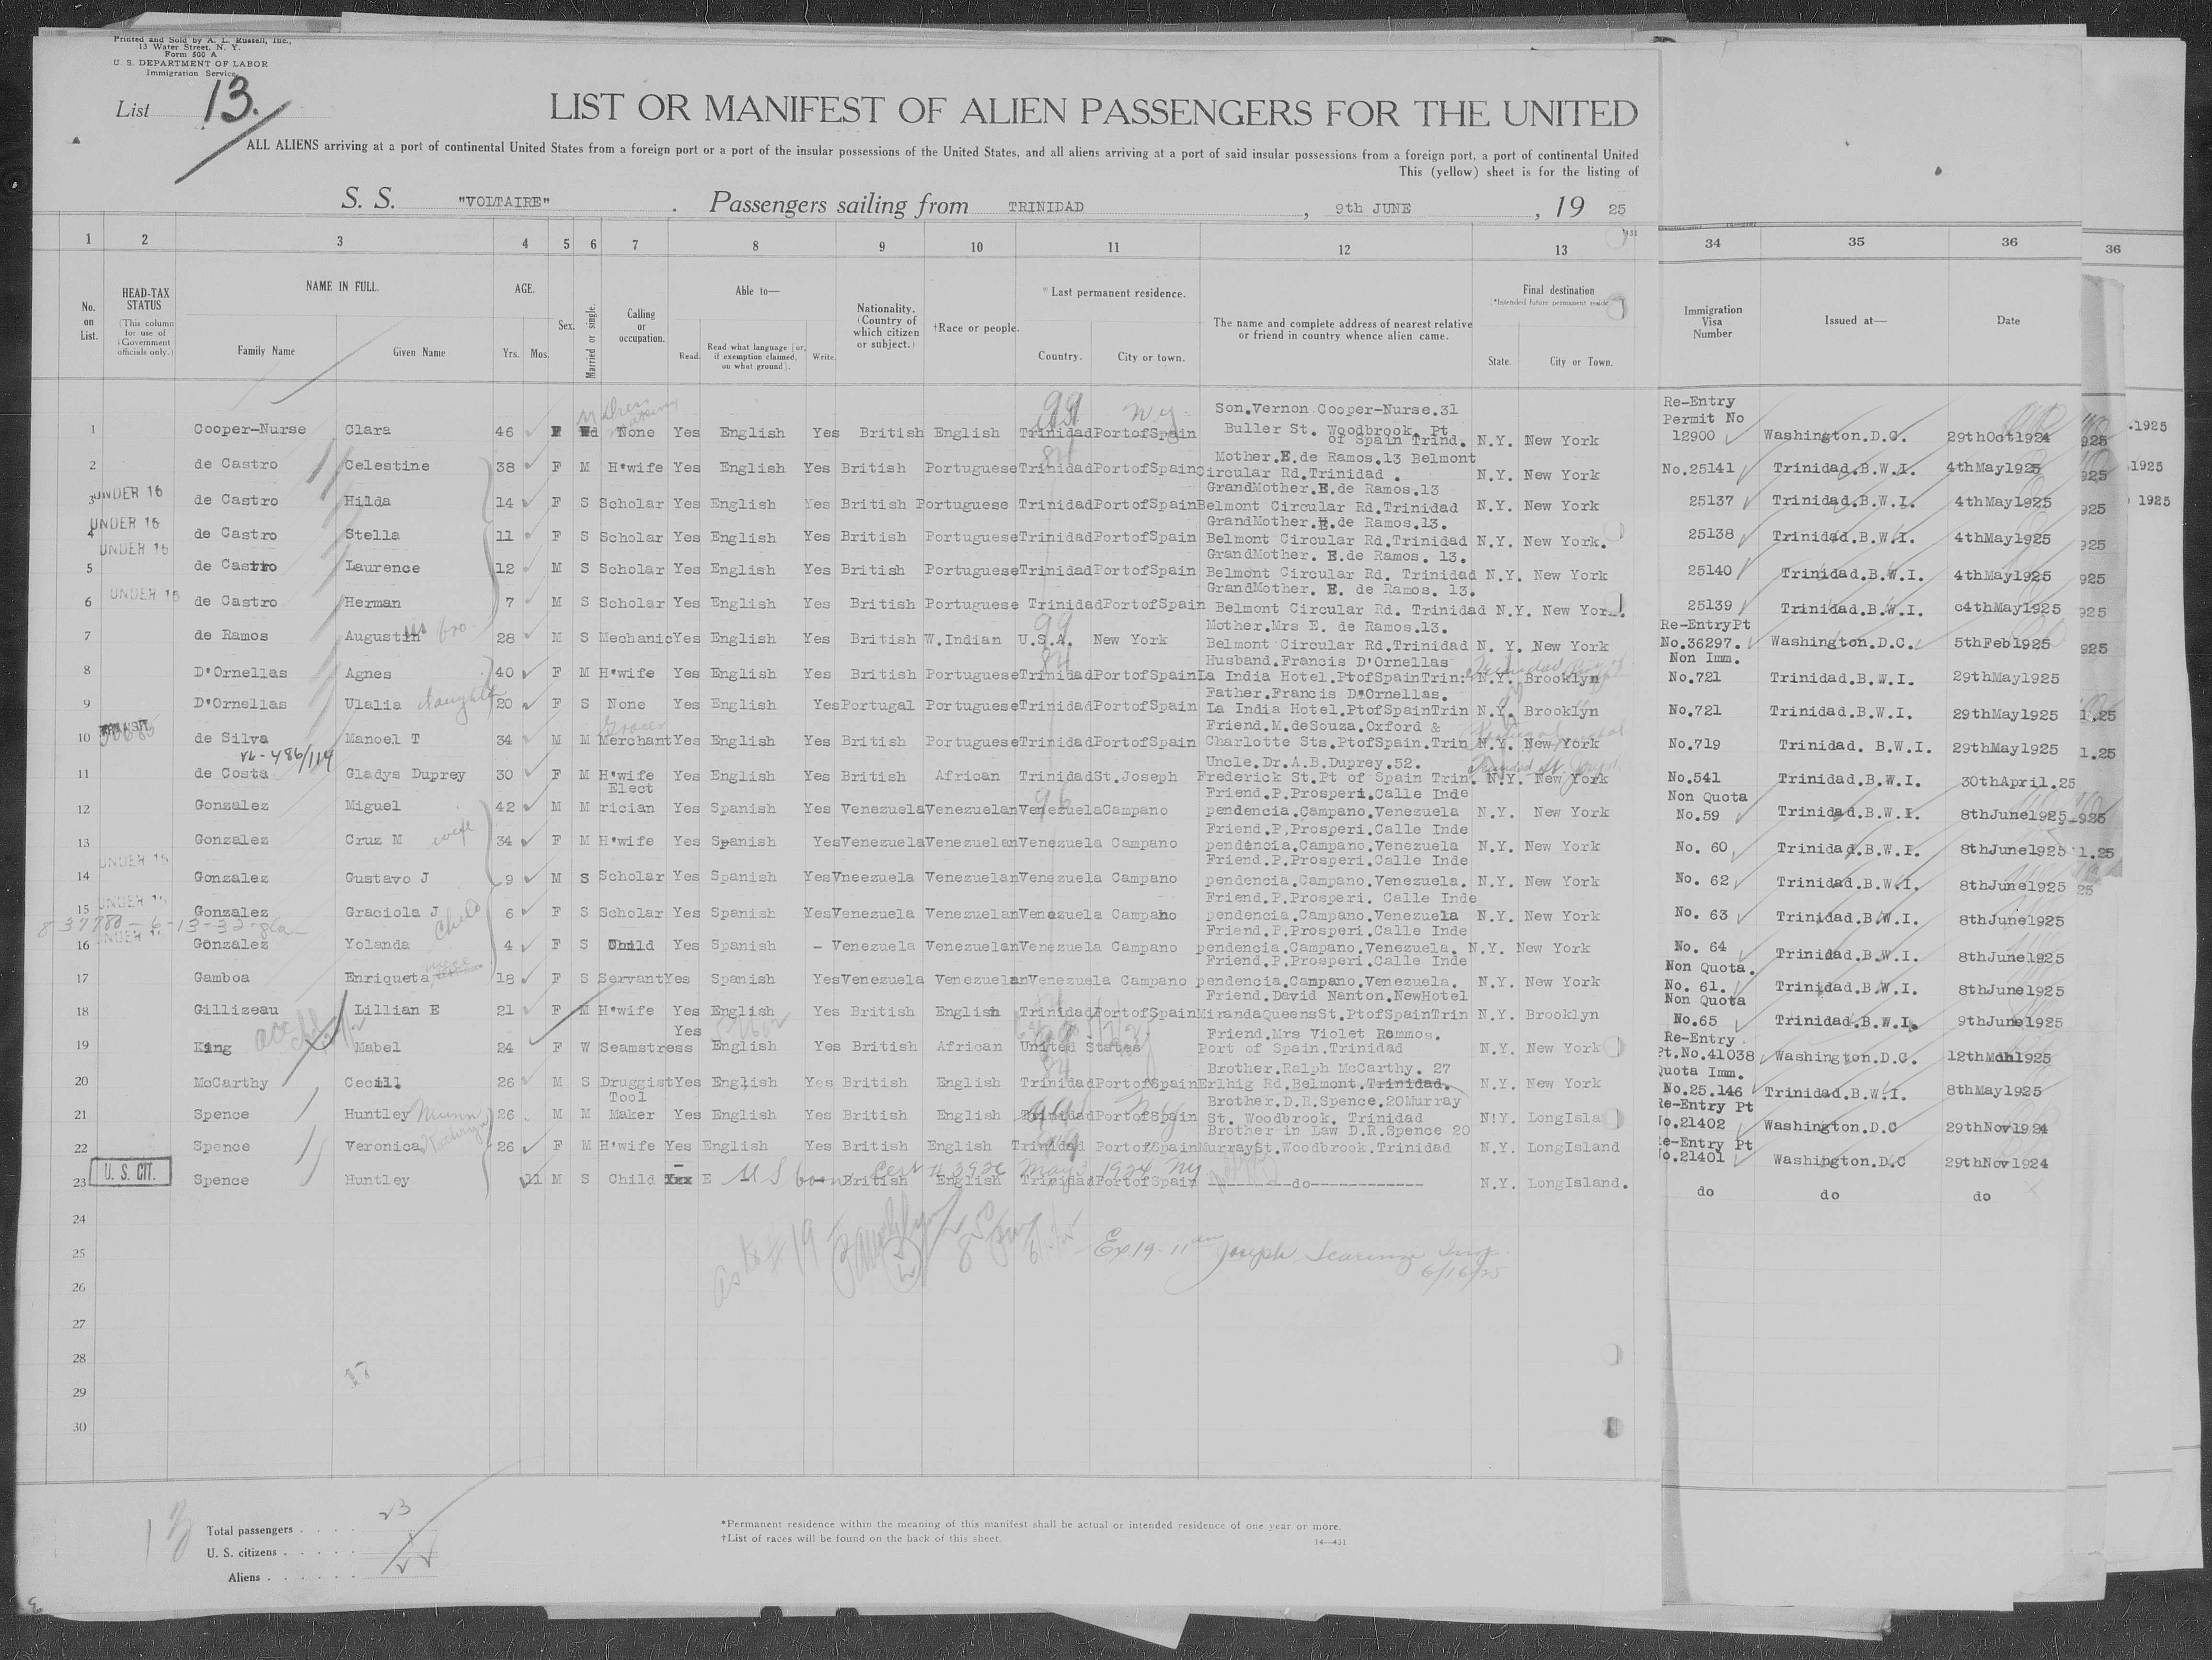 Printed and Sold by A. L. Russell, Inc.,
13 Water Street, N. Y.
Form 500 A
U. S. DEPARTMENT OF LABOR
Immigration Service
List 13.
LIST OR MANIFEST OF ALIEN PASSENGERS FOR THE UNITED
ALL ALIENS arriving at a port of continental United States from a foreign port or a port of the insular possessions of the United States, and all aliens arriving at a port of said insular possessions from a foreign port, a port of continental United
This (yellow) sheet is for the listing of
S. S. "VOLTAIRE". Passengers sailing from TRINIDAD, 9th JUNE, 19 25
1 2 3 4 5 6 7 8 9 10 11 12 13 34 35 36 36
No. on List.
HEAD-TAX STATUS
(This column for use of Government officials only.)
NAME IN FULL.
Family Name Given Name
AGE.
Yrs. Mos.
Sex.
Married or single.
Calling or occupation.
Able to—
Read. Read what language [or, if exemption claimed, on what ground]. Write.
Nationality. (Country of which citizen or subject.)
†Race or people.
*Last permanent residence.
Country. City or town.
The name and complete address of nearest relative or friend in country whence alien came.
Final destination
(*Intended future permanent
State. City or Town.
Immigration Visa Number
Issued at—
Date
1 Cooper-Nurse Clara 46 F Wd None Yes English Yes British English Trinidad PortofSpain Son.Vernon Cooper-Nurse.31 Buller St. Woodbrook. Pt of Spain Trind. N.Y. New York Re-Entry Permit No 12900 Washington.D.C. 29thOct1924
2 de Castro Celestine 38 F M H'wife Yes English Yes British Portuguese Trinidad PortofSpain Mother.E.de Ramos.13 Belmont Circular Rd.Trinidad. N.Y. New York No.25141 Trinidad.B.W.I. 4thMay1925
UNDER 16
3 de Castro Hilda 14 F S Scholar Yes English Yes British Portuguese Trinidad PortofSpain GrandMother.E.de Ramos.13 Belmont Circular Rd.Trinidad N.Y. New York 25137 Trinidad.B.W.I. 4thMay1925
UNDER 16
4 de Castro Stella 11 F S Scholar Yes English Yes British Portuguese Trinidad PortofSpain GrandMother.E.de Ramos.13. Belmont Circular Rd.Trinidad N.Y. New York. 25138 Trinidad.B.W.I. 4thMay1925
UNDER 16
5 de Castro Laurence 12 M S Scholar Yes English Yes British Portuguese Trinidad PortofSpain GrandMother. E.de Ramos. 13. Belmont Circular Rd. Trinidad N.Y. New York 25140 Trinidad.B.W.I. 4thMay1925
UNDER 16
6 de Castro Herman 7 M S Scholar Yes English Yes British Portuguese Trinidad PortofSpain GrandMother. E. de Ramos. 13. Belmont Circular Rd. Trinidad N.Y. New Yor 25139 Trinidad.B.W.I. c4thMay1925
7 de Ramos Augustin bro 28 M S Mechanic Yes English Yes British W.Indian U.S.A. New York Mother.Mrs E. de Ramos.13. Belmont Circular Rd.Trinidad N. Y. New York Re-EntryPt No.36297. Washington.D.C. 5thFeb1925
8 D'Ornellas Agnes 40 F M H'wife Yes English Yes British Portuguese Trinidad PortofSpain Husband.Francis D'Ornellas La India Hotel.PtofSpainTrin: N.Y. Brooklyn Non Imm. No.721 Trinidad.B.W.I. 29thMay1925
9 D'Ornellas Ulalia daughter 20 F S None Yes English Yes Portugal Portuguese Trinidad PortofSpain Father.Francis D'Ornellas. La India Hotel.PtofSpainTrin N.Y. Brooklyn No.721 Trinidad.B.W.I. 29thMay1925
10 de Silva Manoel T 34 M M Grocer Merchant Yes English Yes British Portuguese Trinidad PortofSpain Friend.M.deSouza.Oxford & Charlotte Sts.PtofSpain.Trin N.Y. New York No.719 Trinidad. B.W.I. 29thMay1925
VL-486/114
11 de Costa Gladys Duprey 30 F M H'wife Yes English Yes British African Trinidad St.Joseph Uncle.Dr.A.B.Duprey.52. Frederick St.Pt of Spain Trin. N.Y. New York No.541 Trinidad.B.W.I. 30thApril.25
12 Gonzalez Miguel 42 M M Elect rician Yes Spanish Yes Venezuela Venezuelan Venezuela Campano Friend.P.Prosperi.Calle Inde pendencia.Campano.Venezuela N.Y. New York Non Quota No.59 Trinidad.B.W.I. 8thJune1925
13 Gonzalez Cruz M wife 34 F M H'wife Yes Spanish Yes Venezuela Venezuelan Venezuela Campano Friend.P.Prosperi.Calle Inde pendencia.Campano.Venezuela N.Y. New York No. 60 Trinidad.B.W.I. 8thJune1925
UNDER 16
14 Gonzalez Gustavo J 9 M S Scholar Yes Spanish Yes Vneezuela Venezuelan Venezuela Campano Friend.P.Prosperi.Calle Inde pendencia.Campano.Venezuela. N.Y. New York No. 62 Trinidad.B.W.I. 8thJune1925
UNDER 16
15 Gonzalez Graciola J 6 F S Scholar Yes Spanish Yes Venezuela Venezuelan Venezuela Campano Friend.P.Prosperi. Calle Inde pendencia.Campano.Venezuela N.Y. New York No. 63 Trinidad.B.W.I. 8thJune1925
16 Gonzalez Yolanda Child 4 F S Child Yes Spanish - Venezuela Venezuelan Venezuela Campano Friend.P.Prosperi.Calle Inde pendencia.Campano.Venezuela. N.Y. New York No. 64 Trinidad.B.W.I. 8thJune1925
17 Gamboa Enriqueta 18 F S Servant Yes Spanish Yes Venezuela Venezuelan Venezuela Campano Friend.P.Prosperi.Calle Inde pendencia.Campano.Venezuela. N.Y. New York Non Quota. No. 61. Trinidad.B.W.I. 8thJune1925
18 Gillizeau Lillian E 21 F M H'wife Yes English Yes British English Trinidad PortofSpain Friend.David Nanton.NewHotel MirandaQueensSt.PtofSpainTrin N.Y. Brooklyn Non Quota No.65 Trinidad.B.W.I. 9thJune1925
19 King Mabel 24 F W Seamstress Yes English Yes British African United States Friend.Mrs Violet Rammos. Port of Spain.Trinidad N.Y. New York Re-Entry Pt.No.41038 Washington.D.C. 12thMch1925
20 McCarthy Cecill 26 M S Druggist Yes English Yes British English Trinidad PortofSpain Brother.Ralph McCarthy. 27 Erlhig Rd.Belmont.Trinidad. N.Y. New York Quota Imm. No.25.146 Trinidad.B.W.I. 8thMay1925
21 Spence Huntley 26 M M Tool Maker Yes English Yes British English Trinidad PortofSpain Brother.D.R.Spence.20Murray St. Woodbrook. Trinidad N!Y. LongIsla Re-Entry Pt No.21402 Washington.D.C 29thNov1924
22 Spence Veronica 26 F M H'wife Yes English Yes British English Trinidad PortofSpain Brother in Law D.R.Spence 20 MurraySt.Woodbrook.Trinidad N.Y. LongIsland Re-Entry Pt No.21401 Washington.D.C 29thNov1924
U. S. CIT.
23 Spence Huntley 11 M S Child E US born Cert # 3926 May 3 1924 NY British English Trinidad PortofSpain ----------do------------- N.Y. LongIsland. do do do
24
25 Joseph 6/16/25
26
27
28
29
30
Total passengers . . . . 23
U. S. citizens . . . . . 1
Aliens . . . . . . 22
*Permanent residence within the meaning of this manifest shall be actual or intended residence of one year or more.
†List of races will be found on the back of this sheet.
14—431